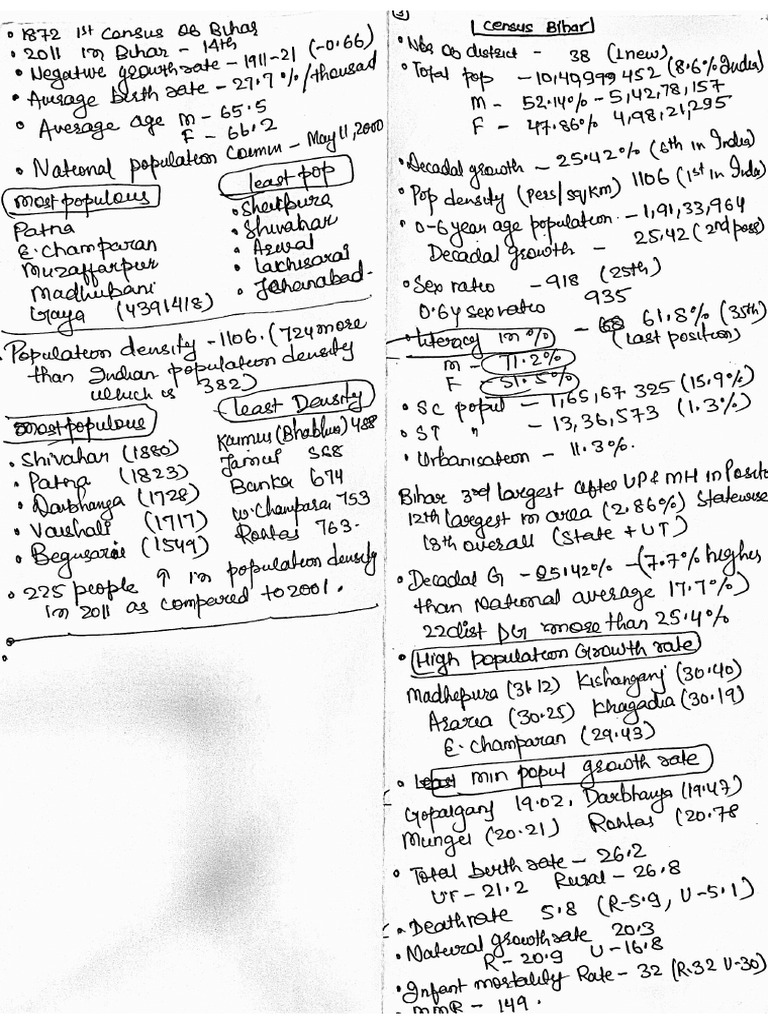 • 1872 1st Census of Bihar
• 2011 in Bihar - 14th
• Negative growth rate - 1911-21 (-0.66)
• Average birth rate - 27.7 %/thousad
• Average age m - 65.5
F - 66.2
• National population Comm - May 11, 2000
most populous
Patna
E. Champaran
Muzaffarpur
Madhubani
Gaya (4391418)
least pop
• Sheikpura
• Shivahar
• Arwal
• Lakhisarai
• Jehanabad
• Population density - 1106. (724 more
than Indian population density
which is 382)
most populous
• Shivahar (1880)
• Patna (1823)
• Darbhanga (1728)
• Vaishali (1717)
• Begusarai (1549)
least Density
Kaimus (Bhabhua) 488
Jamui 568
Banka 674
W. Champaran 753
Rohtas 763.
• 225 people ↑ in population density
in 2011 as compared to 2001.
Census Bihar
• Nos of district - 38 (1 new)
• Total pop - 10,40,999 452 (8.6% India)
m - 52.14% - 5,42,78,157
F - 47.86% 4,98,21,295
• Decadal growth - 25.42% (6th in India)
• Pop density (Pers/sqKm) 1106 (1st in Indo)
• 0-6 year age population - 1,91,33,964
Decadal growth - 25,42 (2nd poss)
• Sex ratio - 918 (25th)
0.6y sex ratio 935
• Literacy in % - 61.8% (35th)
(last position)
m - 71.2%
F - 51.5%
• SC popul - 1,65,67 325 (15.9%)
• ST " - 13,36,573 (1.3%)
• Urbanisation - 11.3%.
Bihar 3rd largest after UP & MH in Posit
12th largest in area (2.86%) Statewise
13th overall (State + UT)
• Decadal G - 25.42% - (7.7% higher
than National average 17.7%)
22 dist DG more than 25.4%
• High population Growth rate
Madhepura (31.12) Kishanganj (30.40)
Araria (30.25) Khagadia (30.19)
E. Champaran (29.43)
• Least min popul growth rate
Gopalganj 19.02, Darbhanga (19.47)
Munger (20.21) Rohtas (20.78
• Total birth rate - 26.2
Ur - 21.2 Rural - 26.8
• Death rate 5.8 (R-5.9, U-5.1)
• Natural growth rate 20.3
R - 20.9 U - 16.8
• Infant mortality Rate - 32 (R.32 U-30)
• MMR - 149.